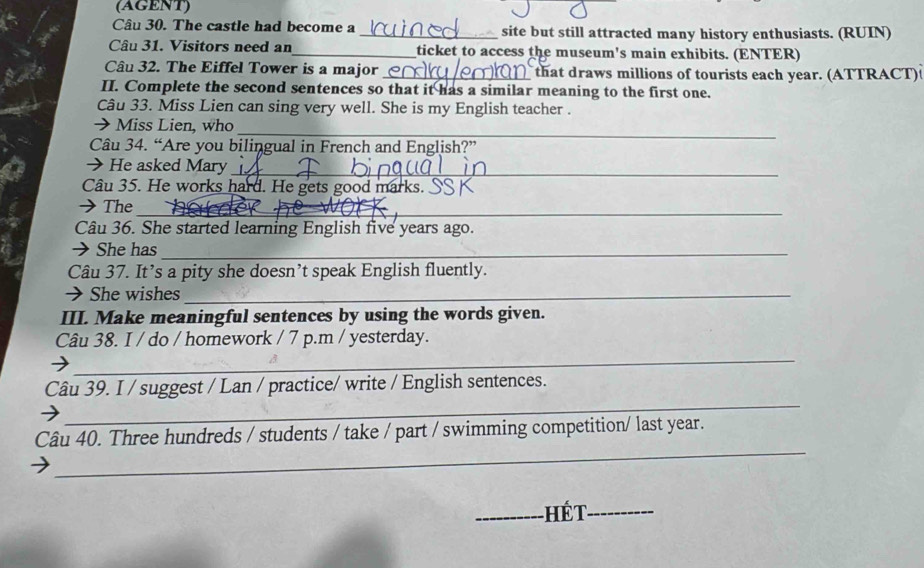 (AGENT)
Câu 30. The castle had become a ruined site but still attracted many history enthusiasts. (RUIN)
Câu 31. Visitors need an____________ticket to access the museum's main exhibits. (ENTER)
Câu 32. The Eiffel Tower is a major that draws millions of tourists each year. (ATTRACT)
II. Complete the second sentences so that it has a similar meaning to the first one.
Câu 33. Miss Lien can sing very well. She is my English teacher .
→ Miss Lien, who
Câu 34. “Are you bilingual in French and English?”
→ He asked Mary if I bingual in
Câu 35. He works hard. He gets good marks. SSK
→ The harder he work,
Câu 36. She started learning English five years ago.
→ She has
Câu 37. It’s a pity she doesn’t speak English fluently.
→ She wishes
III. Make meaningful sentences by using the words given.
Câu 38. I / do / homework / 7 p.m / yesterday.
→
Câu 39. I / suggest / Lan / practice/ write / English sentences.
→
Câu 40. Three hundreds / students / take / part / swimming competition/ last year.
→
----------HẾT----------